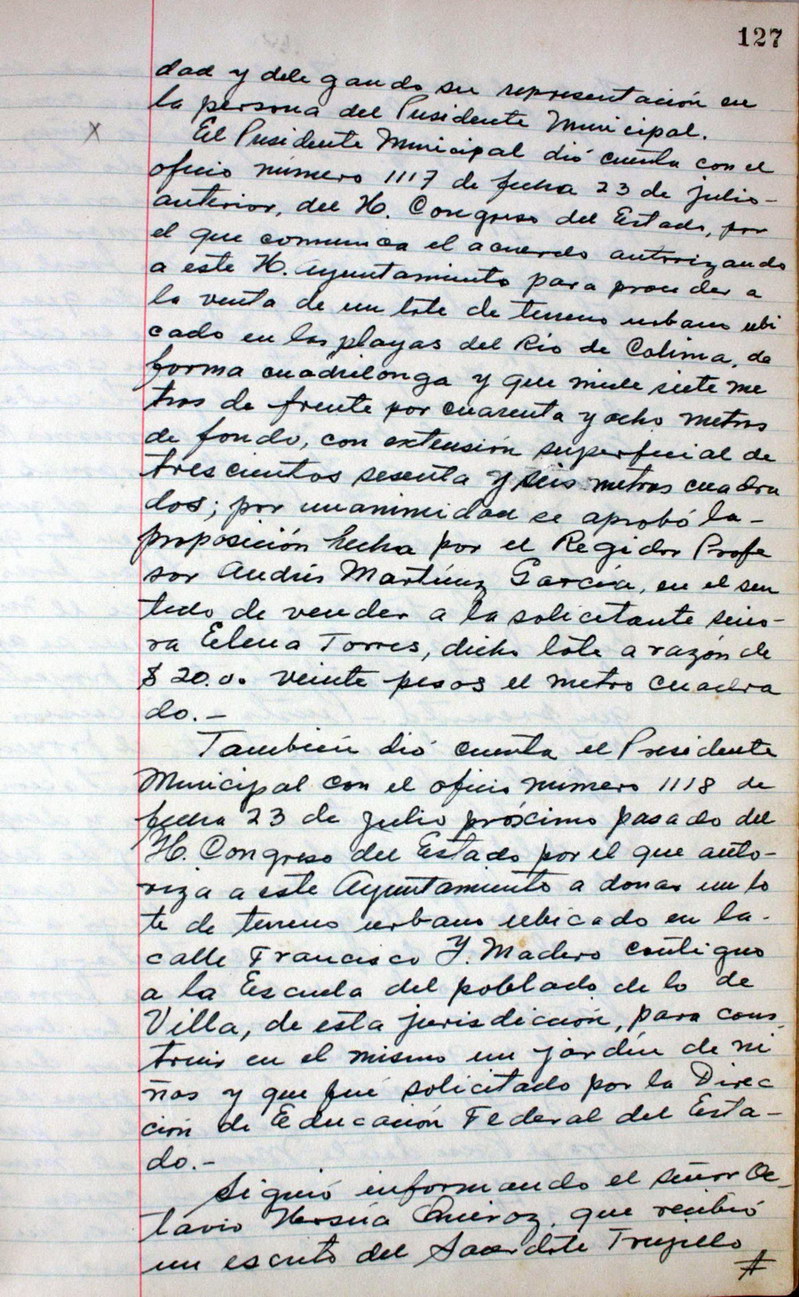 127
dad y delegando su representación en
la persona del Presidente Municipal.
x
El Presidente Municipal dió cuenta con el
oficio número 1117 de fecha 23 de julio-
anterior, del H. Congreso del Estado, por
el que comunica el acuerdo autorizando
a este H. Ayuntamiento para proceder a
la venta de un lote de terreno urbano ubi
cado en las playas del Río de Colima, de
forma cuadrilonga y que mide siete me
tros de frente por cuarenta y ocho metros
de fondo, con extensión superficial de
trescientos sesenta y seis metros cuadra
dos; por unanimidad se aprobó la-
proposición hecha por el Regidor Profe
sor Andrés Martínez García, en el sen
tido de vender a la solicitante seño-
ra Elena Torres, dicho lote a razón de
$ 20.00 veinte pesos el metro cuadra
do.-
También dió cuenta el Presidente
Municipal con el oficio número 1118 de
fecha 23 de julio próximo pasado del
H. Congreso del Estado por el que auto-
riza a este Ayuntamiento a donar un lo
te de terreno urbano ubicado en la-
calle Francisco Y. Madero contiguo
a la Escuela del poblado de lo de
Villa, de esta jurisdicción, para cons
truir en el mismo un jardín de ni
ños y que fué solicitado por la Direc
ción de Educación Federal del Esta-
do.-
Siguió informando el señor Oc-
tavio Quiroz, que recibió
un escrito del Sacerdote Trujillo
#